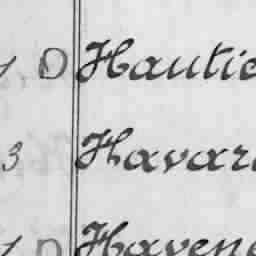 D Hautie
3 Havar
D Havene